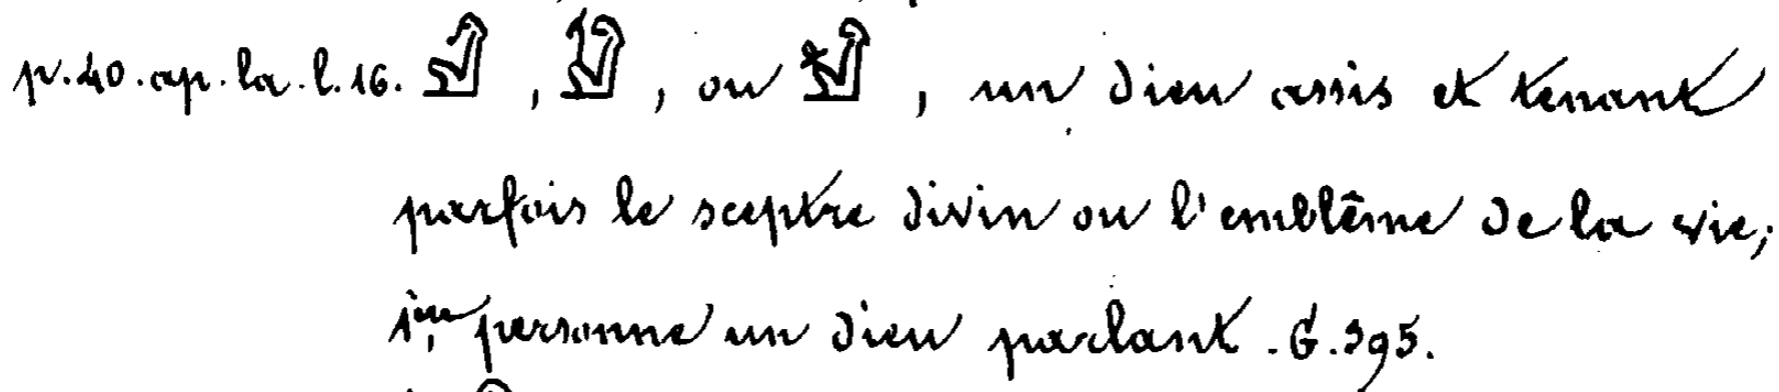 p. 40. ap. la. l. 16. 𓀭, 𓀭, ou 𓀭, un dieu assis et tenant
parfois le sceptre divin ou l'emblême de la vie;
1ère personne un dieu parlant. G. 395.